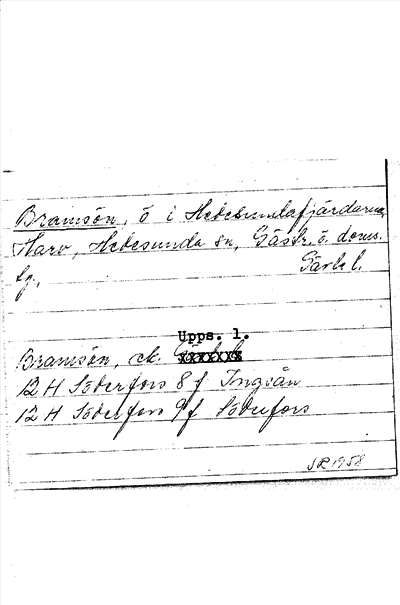 Bramsön, ö i Hedesundafjärdarna,
Harv, Hedesunda sn, Gästr. ö. doms.
Gävle l.
tg.
Upps. l.
Bramsön, ek. xxxxxxx
12 H Söderfors 8 f Ingsån
12 H Söderfors 9 f Söderfors
SR 1958